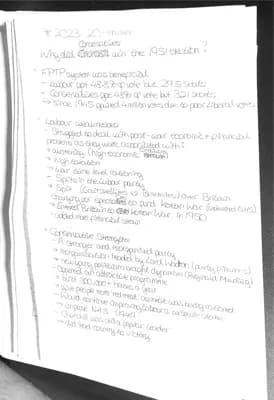 * 2023 20-marker
Conservatives
Why did win the 1951 election?
• FPTP system was beneficial
- Labour got 48.8% of vote but 295 seats
- Conservatives got 48% of vote but 321 seats
→ since 1945 gained 4 million votes due to poor liberal votes
• Labour weaknesses
- Struggled to deal with post-war economic + financial
problems as they were associated with:
→ austerity (high economic
→ high taxation
→ war time level rationing
- Splits in the Labour party
→ Split (Gaitskellites vs Bevanites) over Britain
charging for specs and Korean War
- Entered Britain to Korean War in 1950
- added more financial strain
• Conservative Strengths
- A stronger and reorganised party
→ reorganisation headed by Lord Woolton (party
→ new young politicians brought dynamism (Reginald Maudling)
- Offered an attractive programme
→ build 300,000+ houses a year
→ give people more red meat as meat was being rationed
- Would continue improving Labour's welfare state
→ improve NHS (1946)
- Churchill was still a popular leader
→ did lead country to victory